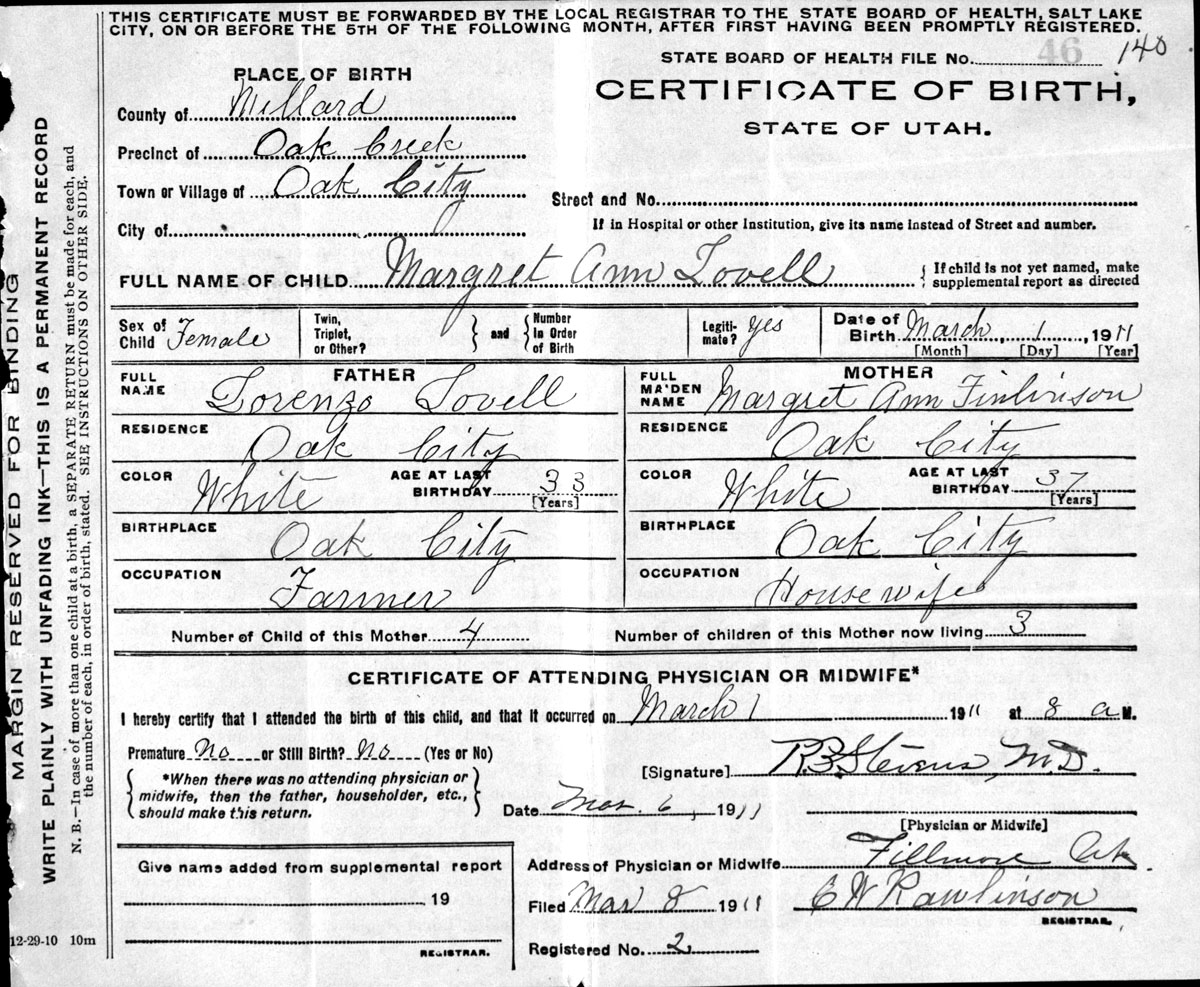 THIS CERTIFICATE MUST BE FORWARDED BY THE LOCAL REGISTRAR TO THE STATE BOARD OF HEALTH, SALT LAKE
CITY, ON OR BEFORE THE 5TH OF THE FOLLOWING MONTH, AFTER FIRST HAVING BEEN PROMPTLY REGISTERED.
STATE BOARD OF HEALTH FILE No. 46 140
CERTIFICATE OF BIRTH,
STATE OF UTAH.
PLACE OF BIRTH
County of Millard
Precinct of Oak Creek
Town or Village of Oak City
City of
Street and No.
If in Hospital or other Institution, give its name instead of Street and number.
FULL NAME OF CHILD Margret Ann Lovell { If child is not yet named, make
supplemental report as directed
Sex of Child Female
Twin, Triplet, or Other? } and { Number In Order of Birth
Legiti-mate? Yes
Date of Birth March, 1, 1911
[Month] [Day] [Year]
FATHER
FULL NAME Lorenzo Lovell
RESIDENCE Oak City
COLOR White AGE AT LAST BIRTHDAY 33 [Years]
BIRTHPLACE Oak City
OCCUPATION Farmer
MOTHER
FULL MAIDEN NAME Margret Ann Finlinson
RESIDENCE Oak City
COLOR White AGE AT LAST BIRTHDAY 37 [Years]
BIRTHPLACE Oak City
OCCUPATION Housewife
Number of Child of this Mother 4 Number of children of this Mother now living 3
CERTIFICATE OF ATTENDING PHYSICIAN OR MIDWIFE*
I hereby certify that I attended the birth of this child, and that it occurred on March 1 1911 at 8 a M.
Premature No or Still Birth? No (Yes or No)
{ *When there was no attending physician or
midwife, then the father, householder, etc.,
should make this return. }
[Signature] R.B. Stevens, M.D.
Date Mar. 6, 1911
[Physician or Midwife]
Give name added from supplemental report
19
REGISTRAR.
Address of Physician or Midwife Fillmore Ut
Filed Mar 8 1911 C W Rawlinson
REGISTRAR.
Registered No. 2
12-29-10 10m
MARGIN RESERVED FOR BINDING
WRITE PLAINLY WITH UNFADING INK—THIS IS A PERMANENT RECORD
N. B.—In case of more than one child at a birth, a SEPARATE RETURN must be made for each, and
the number of each, in order of birth, stated. SEE INSTRUCTIONS ON OTHER SIDE.